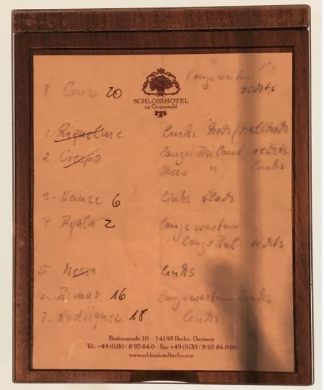 lange warten
8 Cruz 20 rechts
SCHLOSSHOTEL
im Grunewald
1 Riquelme links hoch
2. Crespo lang Anlauf rechts
links
3. Heinze 6 links flach
4 Ayala 2 lange warten
lang Anl rechts
5. Messi links
6. Aimar 16 lange warten links
7. Rodriguez 18 links
Brahmsstraße 10 · 14193 Berlin, Germany
Tel.: +49 (0)30 / 8 95 84-0 · Fax: +49 (0)30 / 8 95 84-8 00
www.schlosshotelberlin.com